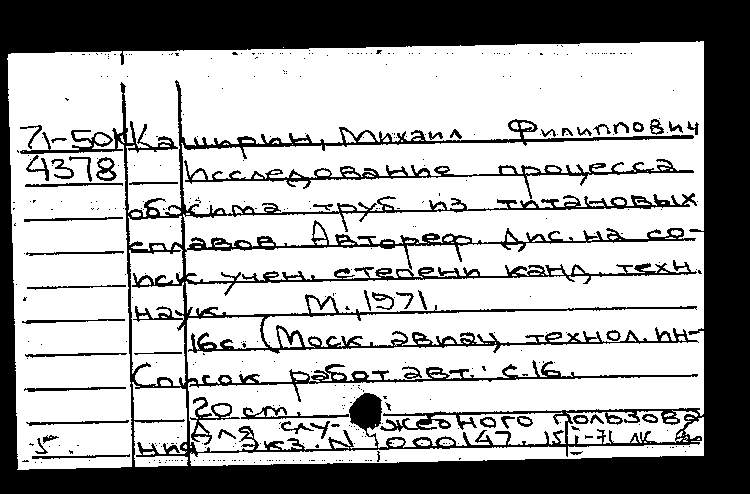 71-50К Каширин, Михаил Филиппович
4378 Исследование процесса
обжима труб из титановых
сплавов. Автореф. дис. на со-
иск. учен. степени канд. техн.
наук. М., 1971.
16с. (Моск. авиац. технол. ин-
Список работ авт.: с.16.
20 cm.
Для слу- жебного пользова
ния. Экз. N 000147. 15 I-71